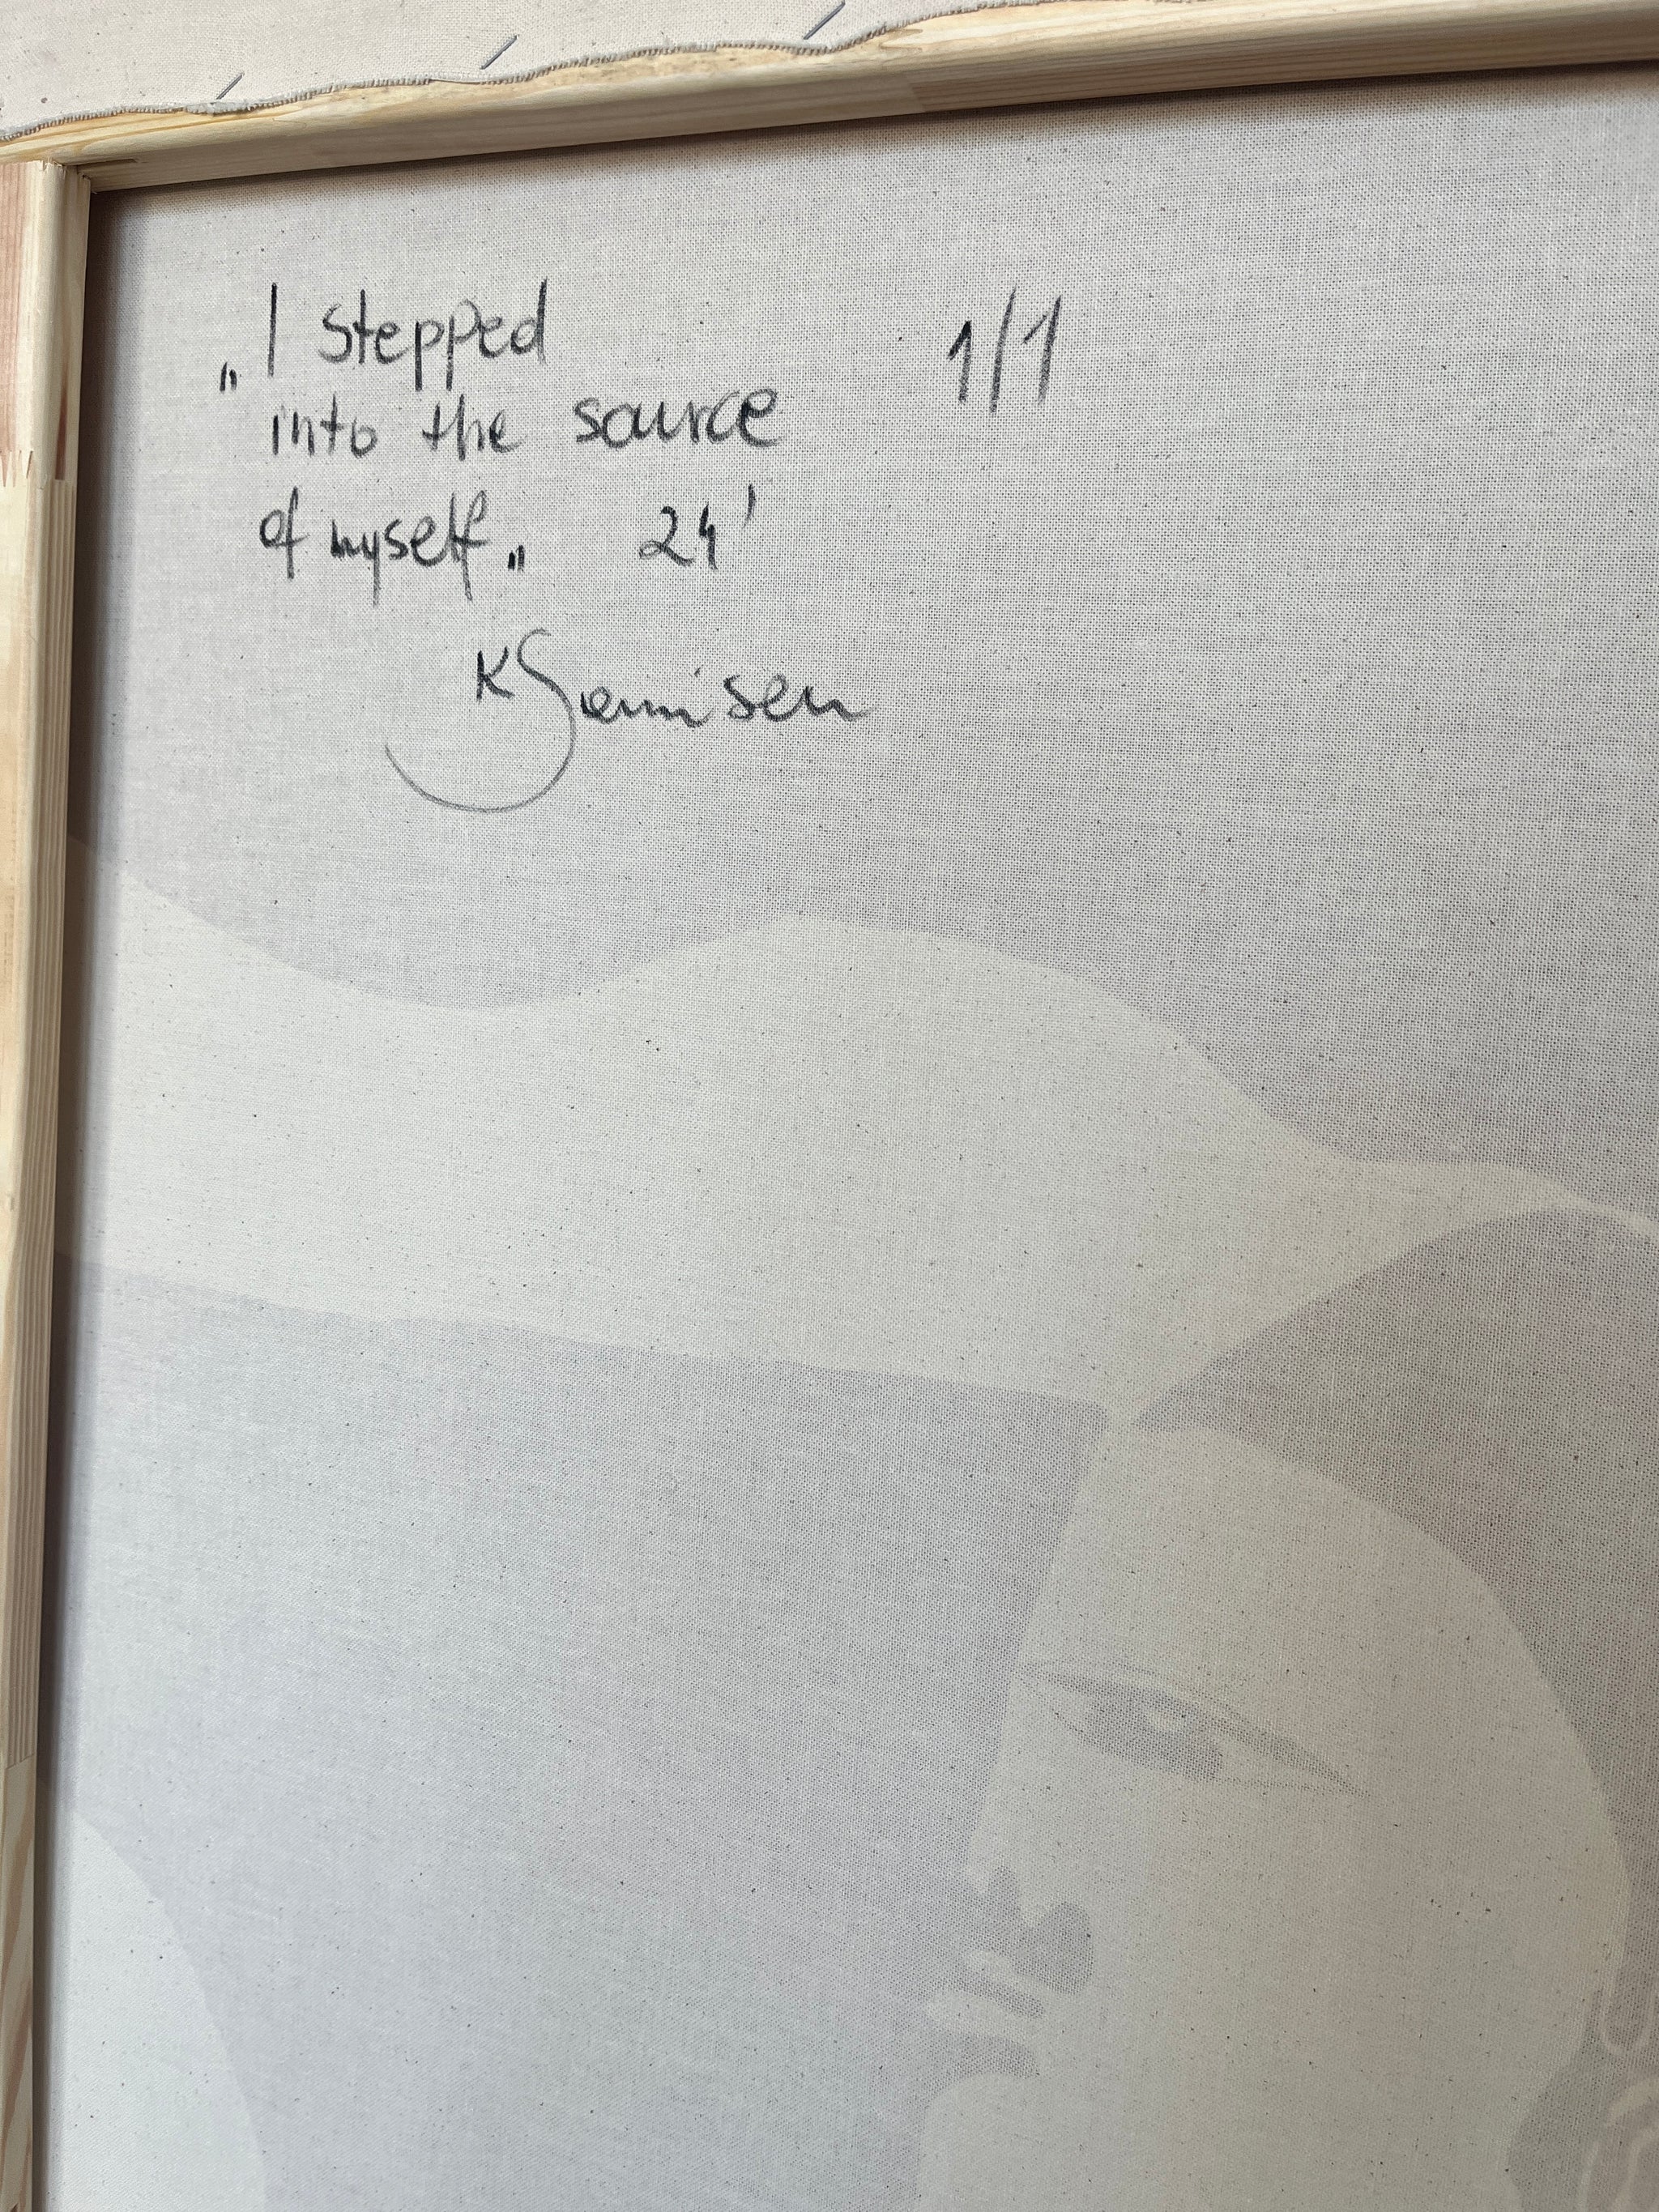 „I stepped
into the source
of myself„ 24'
1/1